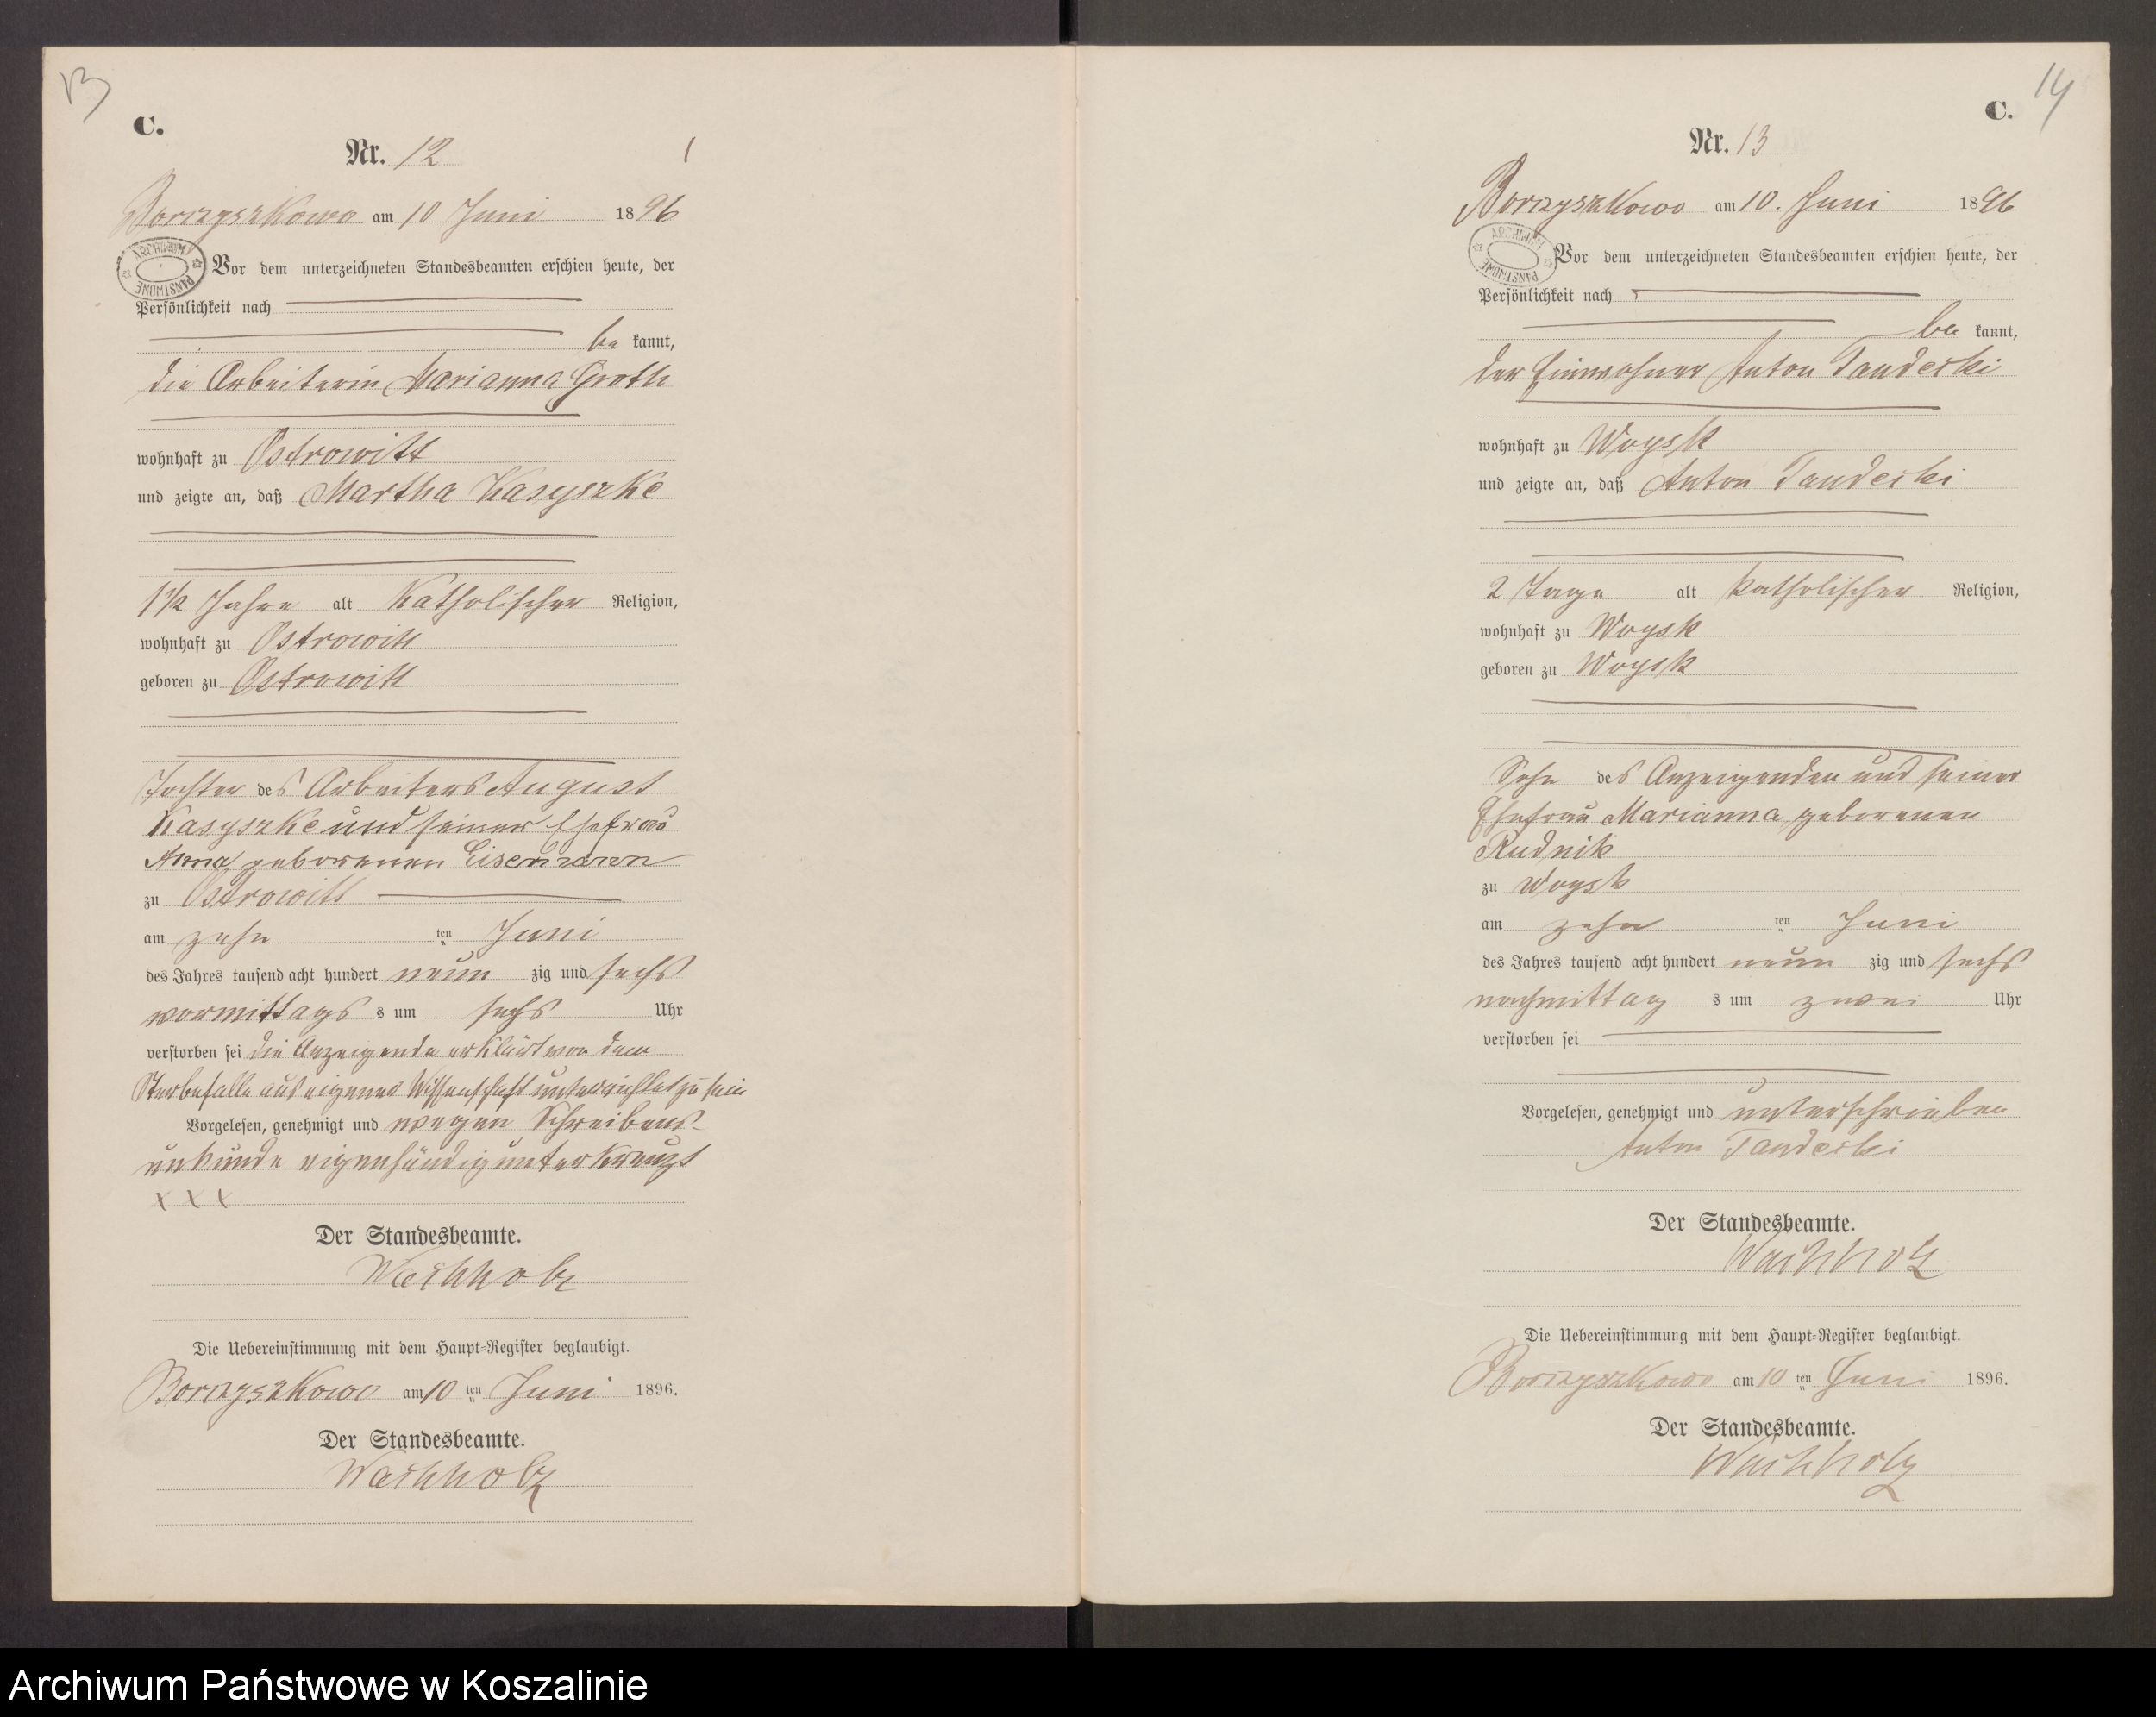 13
C.
Nr. 12
Borzyszkowo am 10 Juni 1896
ARCHIWUM PAŃSTWOWE
Vor dem unterzeichneten Standesbeamten erschien heute, der
Persönlichkeit nach
be kannt,
die Arbeiterin Marianna Groth
wohnhaft zu Ostrowitt
und zeigte an, daß Martha Kasyszke
1 1/2 Jahre alt Katholischer Religion,
wohnhaft zu Ostrowitt
geboren zu Ostrowitt
Tochter des Arbeiters August
Kasyszke und seiner Ehefrau
Anna geborenen Eisenmann
zu Ostrowitt
am zehn ten Juni
des Jahres tausend acht hundert neun zig und sechs
vormittags s um sechs Uhr
verstorben sei die Anzeigende erklärt von dem
Sterbefalle aus eigener Wissenschaft unterrichtet zu sein
Vorgelesen, genehmigt und wegen Schreibens-
unkunde eigenhändig unterkreuzt
x x x
Der Standesbeamte.
Wachholz
Die Uebereinstimmung mit dem Haupt-Register beglaubigt.
Borzyszkowo am 10 ten Juni 1896.
Der Standesbeamte.
Wachholz
14
C.
Nr. 13
Borzyszkowo am 10. Juni 1896
ARCHIWUM PAŃSTWOWE
Vor dem unterzeichneten Standesbeamten erschien heute, der
Persönlichkeit nach
be kannt,
der Einwohner Anton Tandecki
wohnhaft zu Woysk
und zeigte an, daß Anton Tandecki
2 Tage alt katholischer Religion,
wohnhaft zu Woysk
geboren zu Woysk
Sohn des Anzeigenden und seiner
Ehefrau Marianna geborenen
Rudnik
zu Woysk
am zehn ten Juni
des Jahres tausend acht hundert neun zig und sechs
nachmittag s um zwei Uhr
verstorben sei
Vorgelesen, genehmigt und unterschrieben
Anton Tandecki
Der Standesbeamte.
Wachholz
Die Uebereinstimmung mit dem Haupt-Register beglaubigt.
Borzyszkowo am 10 ten Juni 1896.
Der Standesbeamte.
Wachholz
Archiwum Państwowe w Koszalinie